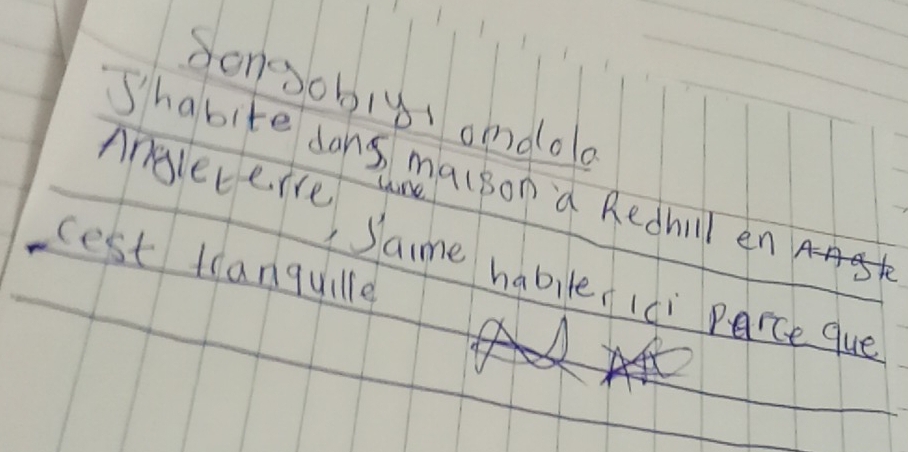 Songobiy, omdola
J'habite dans une maison à Redhill en
Angleterre, J'aime habiter ici parce que
c'est tranquille